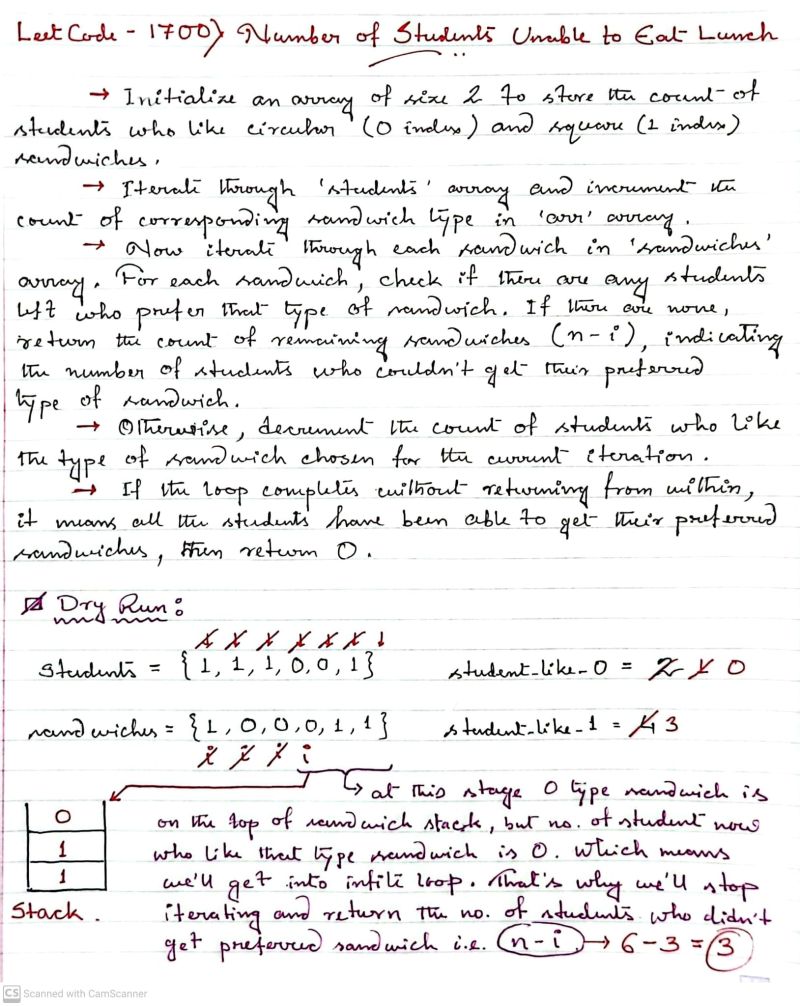 LeetCode - 1700) Number of Students Unable to Eat Lunch
→ Initialize an array of size 2 to store the count of
students who like circular (0 index) and square (1 index)
sandwiches.
→ Iterate through 'students' array and increment the
count of corresponding sandwich type in 'arr' array.
→ Now iterate through each sandwich in 'sandwiches'
array. For each sandwich, check if there are any students
left who prefer that type of sandwich. If there are none,
return the count of remaining sandwiches (n-i), indicating
the number of students who couldn't get their preferred
type of sandwich.
→ Otherwise, decrement the count of students who like
the type of sandwich chosen for the current iteration.
→ If the loop completes without returning from within,
it means all the students have been able to get their preferred
sandwiches, then return 0.
Dry Run:
students = {1, 1, 1, 0, 0, 1} student_like_0 = 2 1 0
sandwiches = {1, 0, 0, 0, 1, 1} student_like_1 = 4 3
i i i i
→ at this stage 0 type sandwich is
0 on the top of sandwich stack, but no. of student now
1 who like that type sandwich is 0. Which means
1 we'll get into infite loop. That's why we'll stop
Stack. iterating and return the no. of students who didn't
get preferred sandwich i.e. (n-i) → 6-3 = 3
CS Scanned with CamScanner